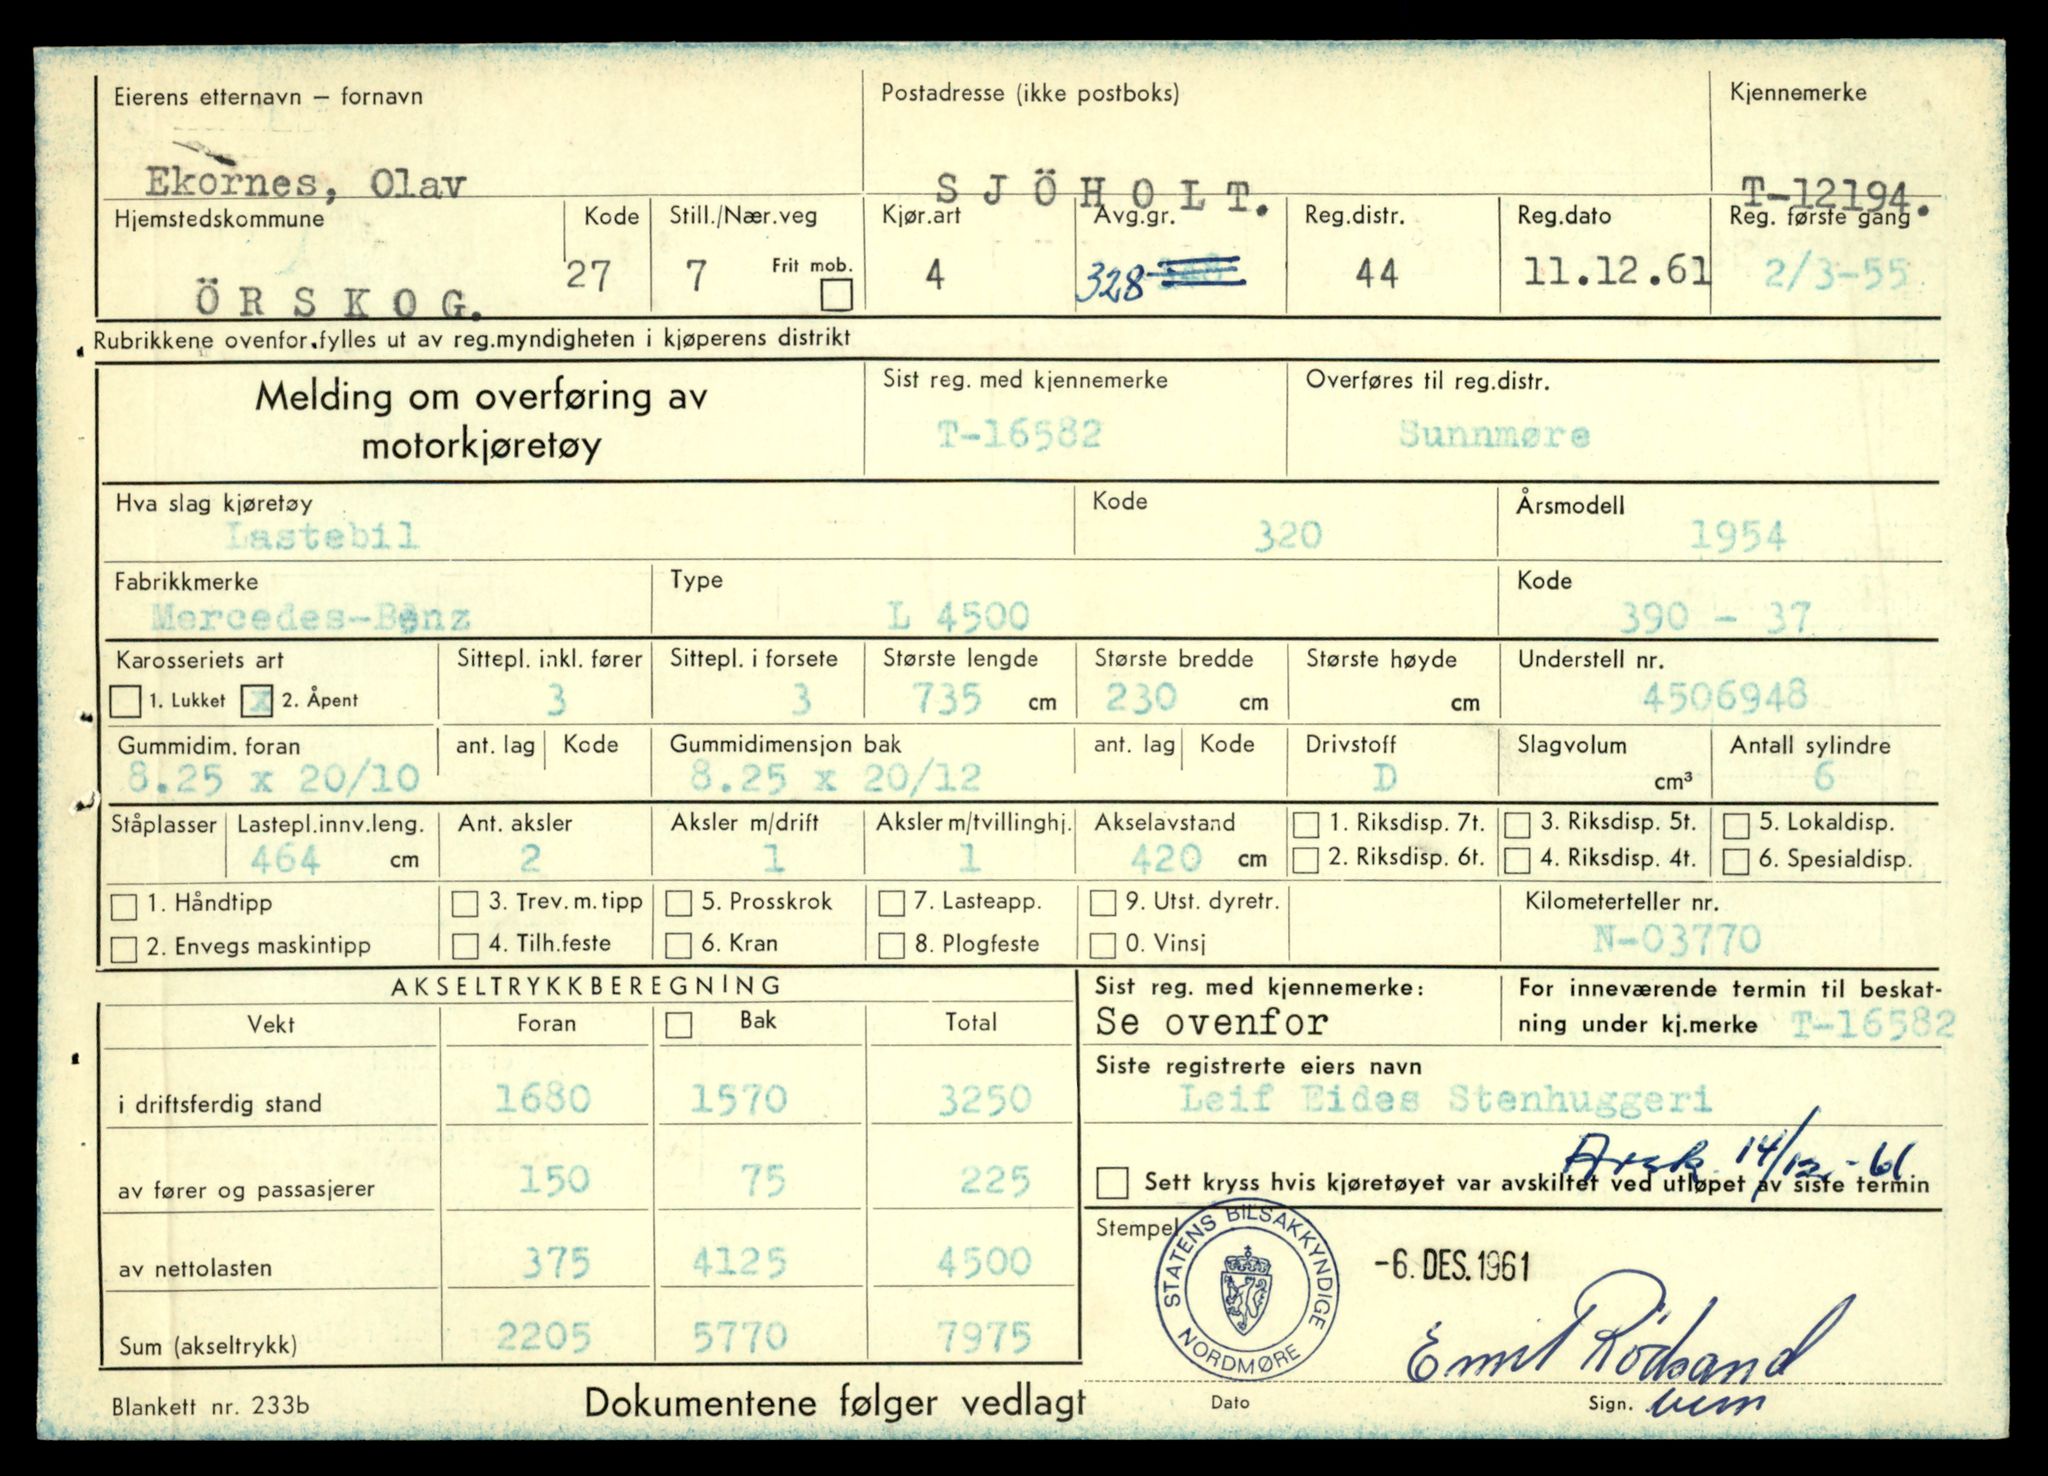 Eierens etternavn – fornavn
Postadresse (ikke postboks)
Kjennemerke
Ekornes, Olav
SJÖHOLT.
T-12194.
Hjemstedskommune
Kode
Still./Nær.veg
Kjør.art
Avg.gr.
Reg.distr.
Reg.dato
Reg. første gang
ÖRSKOG.
27
7
Frit mob.
4
328
44
11.12.61
2/3-55
Rubrikkene ovenfor fylles ut av reg.myndigheten i kjøperens distrikt
Melding om overføring av
motorkjøretøy
Sist reg. med kjennemerke
T-16582
Overføres til reg.distr.
Sunnmøre
Hva slag kjøretøy
Lastebil
Kode
320
Årsmodell
1954
Fabrikkmerke
Mercedes-Benz
Type
L 4500
Kode
390 - 37
Karosseriets art
1. Lukket x 2. Åpent
Sittepl. inkl. fører
3
Sittepl. i forsete
3
Største lengde
735 cm
Største bredde
230 cm
Største høyde
cm
Understell nr.
4506948
Gummidim. foran
8.25 x 20/10
ant. lag
Kode
Gummidimensjon bak
8.25 x 20/12
ant. lag
Kode
Drivstoff
D
Slagvolum
cm³
Antall sylindre
6
Ståplasser
Lastepl.innv.leng.
464 cm
Ant. aksler
2
Aksler m/drift
1
Aksler m/tvillinghj.
1
Akselavstand
420 cm
1. Riksdisp. 7t.
2. Riksdisp. 6t.
3. Riksdisp. 5t.
4. Riksdisp. 4t.
5. Lokaldisp.
6. Spesialdisp.
1. Håndtipp
2. Envegs maskintipp
3. Trev. m. tipp
4. Tilh.feste
5. Prosskrok
6. Kran
7. Lasteapp.
8. Plogfeste
9. Utst. dyretr.
0. Vinsj
Kilometerteller nr.
N-03770
AKSELTRYKKBEREGNING
Vekt
Foran
Bak
Total
i driftsferdig stand
1680
1570
3250
av fører og passasjerer
150
75
225
av nettolasten
375
4125
4500
Sum (akseltrykk)
2205
5770
7975
Sist reg. med kjennemerke:
Se ovenfor
For inneværende termin til beskat-
ning under kj.merke T-16582
Siste registrerte eiers navn
Leif Eides Stenhuggeri
14/12-61
Sett kryss hvis kjøretøyet var avskiltet ved utløpet av siste termin
Stempel
STATENS BILSAKKYNDIGE
NORDMØRE
-6. DES. 1961
Emil Rödsand
Dato
Sign.
Blankett nr. 233b
Dokumentene følger vedlagt